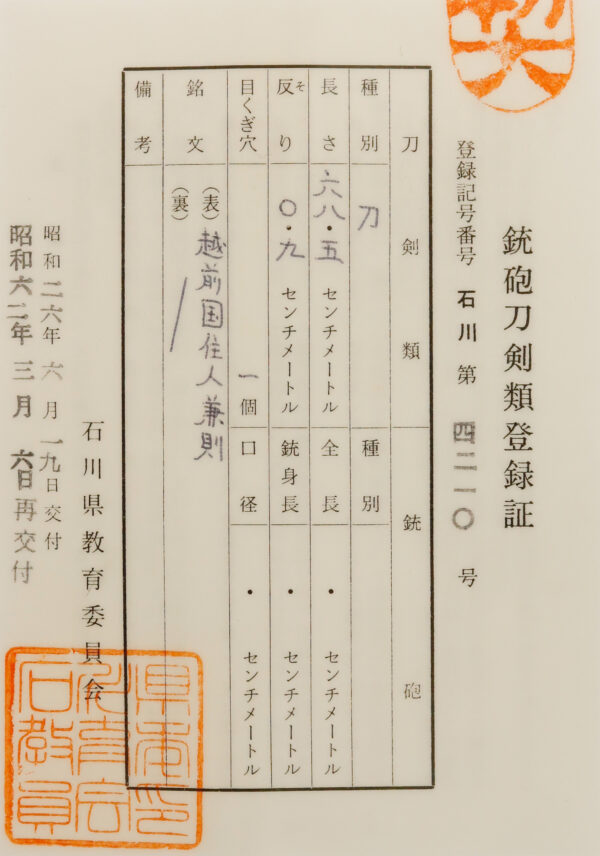 銃砲刀剣類登録証
登録記号番号 石川 第 号
刀剣類 銃砲
種別 刀 種別
長さ 六八・五 センチメートル 全長 ・ センチメートル
反り 〇・九 センチメートル 銃身長 ・ センチメートル
そ
目くぎ穴 一個 口径 ・ センチメートル
銘文 (表) 越前国住人兼則
(裏)
備考
石川県教育委員会
昭和二六年 六月 一九日交付
昭和六二年 三月 六日再交付